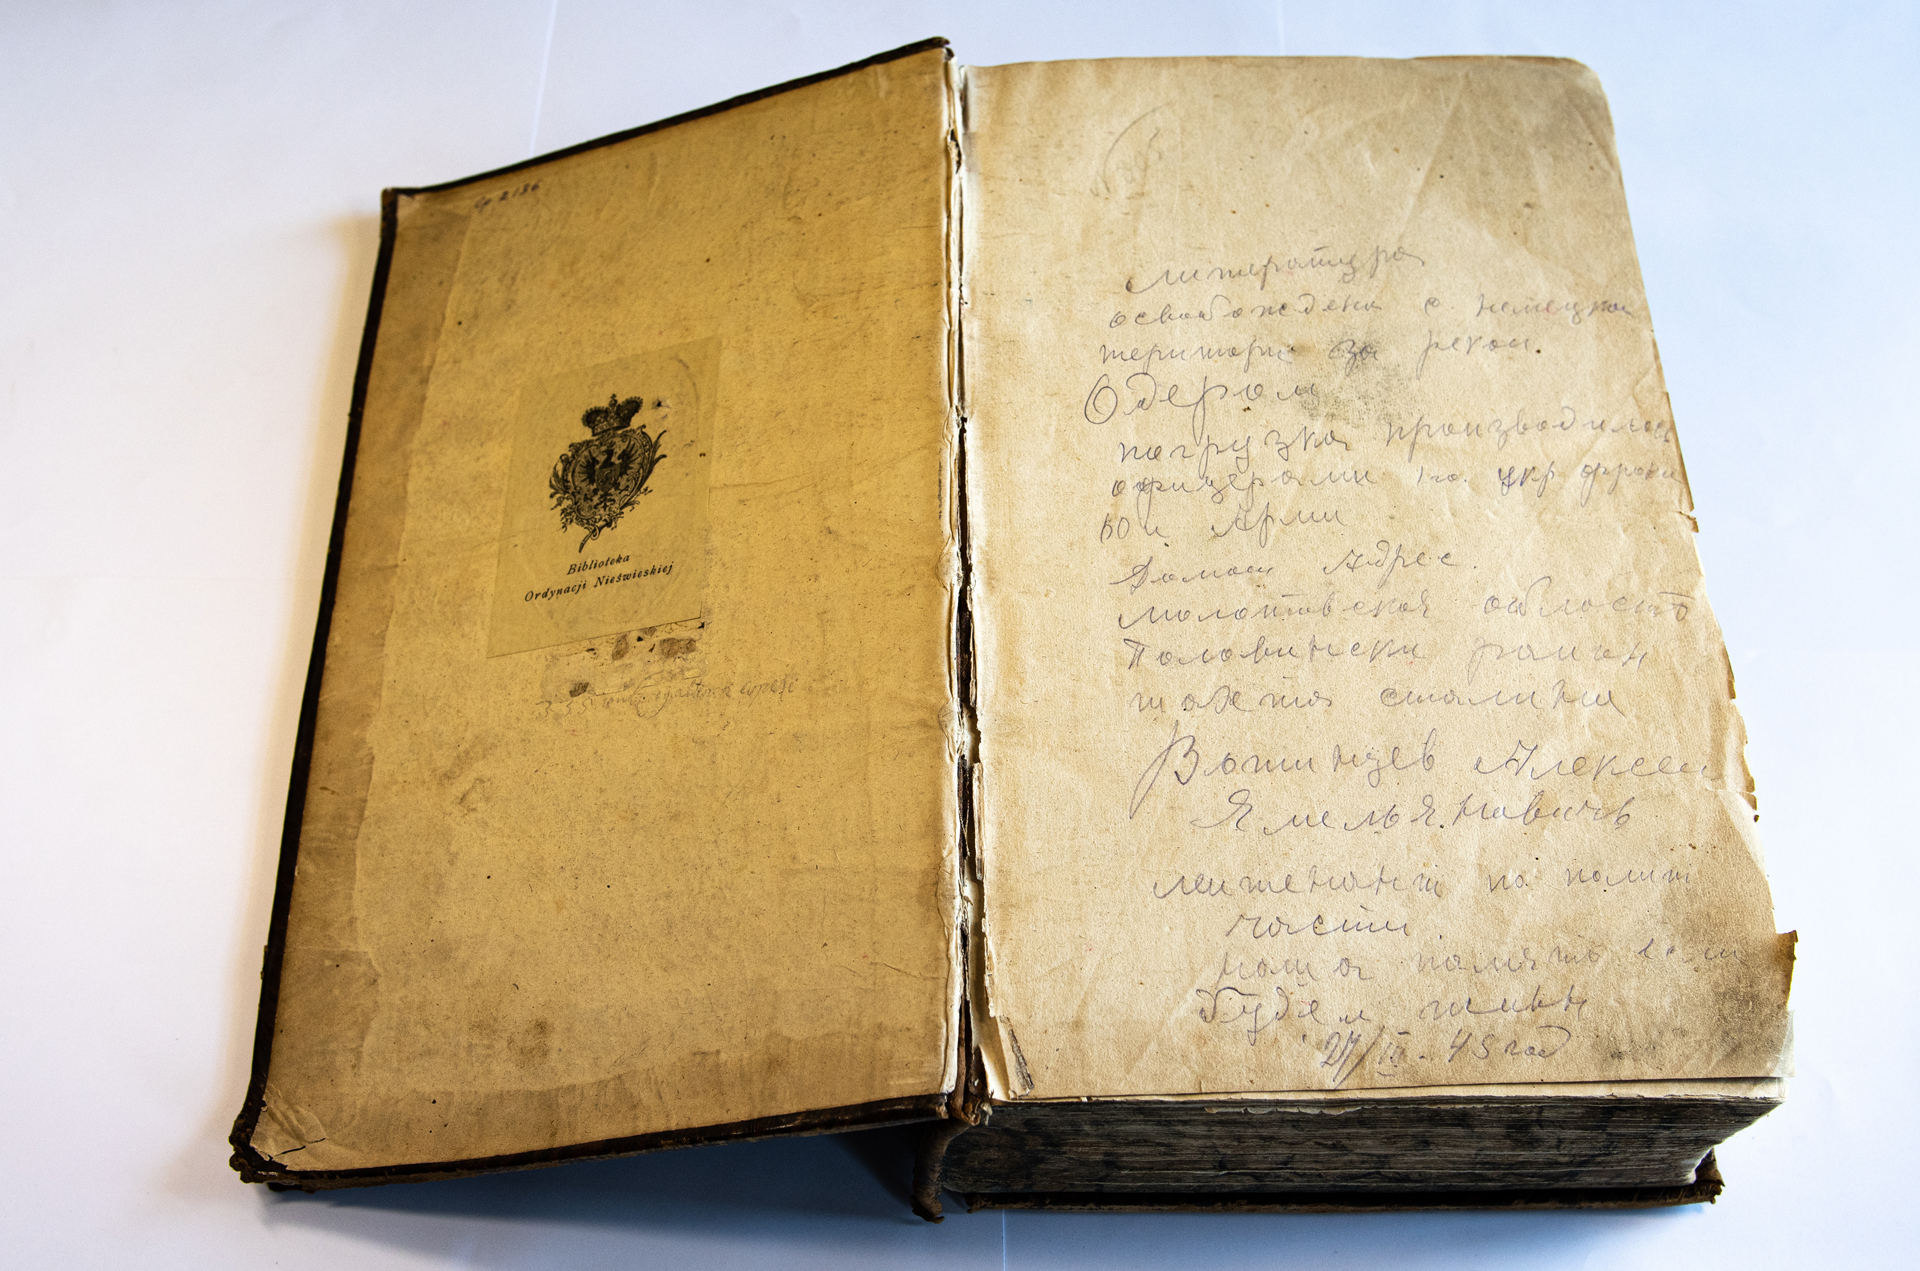 2136
Biblioteka
Ordynacji Nieświeskiej
литература
освобождена с немецкой
територи за рекои.
Одером
погрузка производилась
офицерами 1го. укр фронта
Адрес.
молотовская область
Половински раиян
шахта сталина
Вотинцев Алексеи
Ямельянович
леитенант по полит
части.
память
будем живы
27/III-45 год